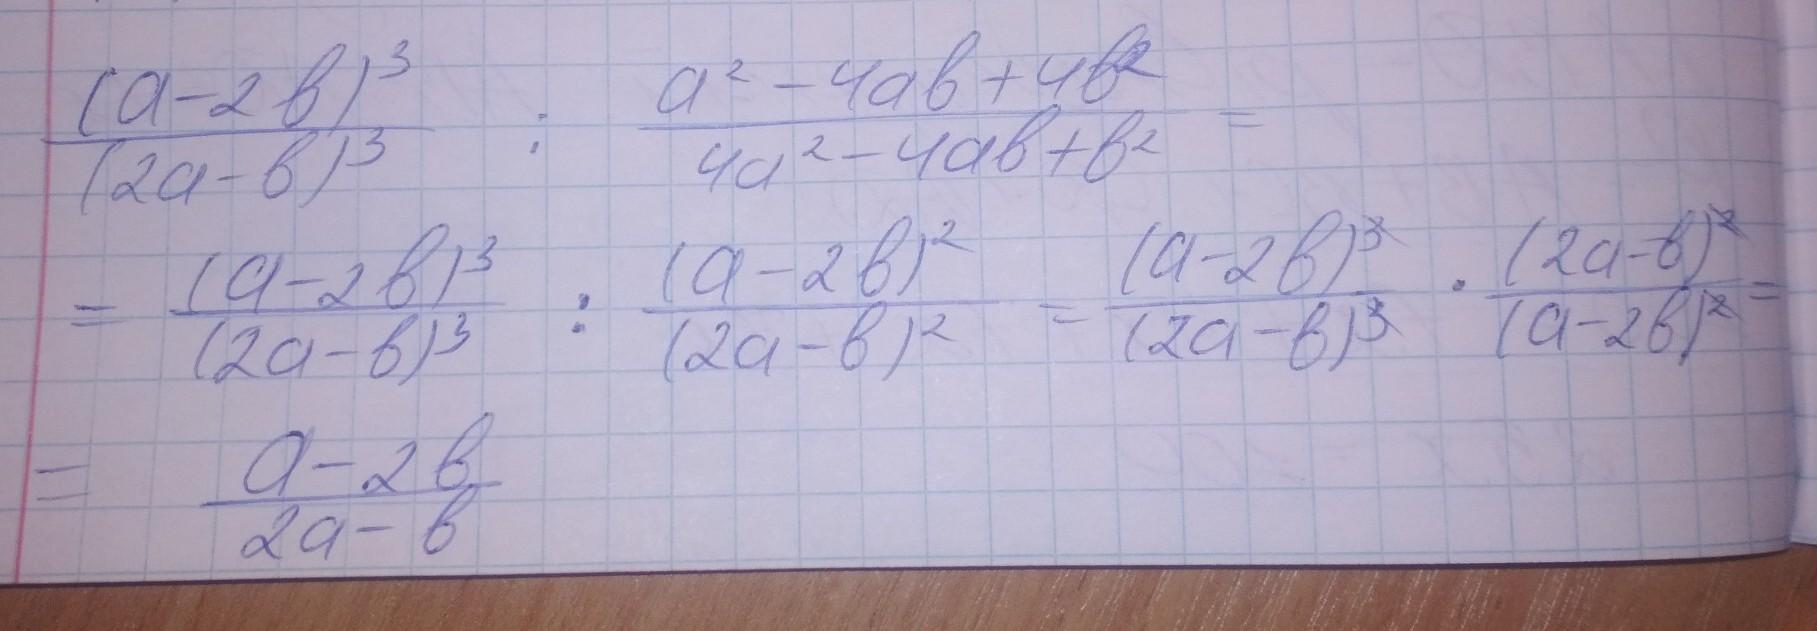 (a-2b)³/(2a-b)³ : (a²-4ab+4b²)/(4a²-4ab+b²) =
= (a-2b)³/(2a-b)³ : (a-2b)²/(2a-b)² = (a-2b)³/(2a-b)³ · (2a-b)²/(a-2b)² =
= (a-2b)/(2a-b)